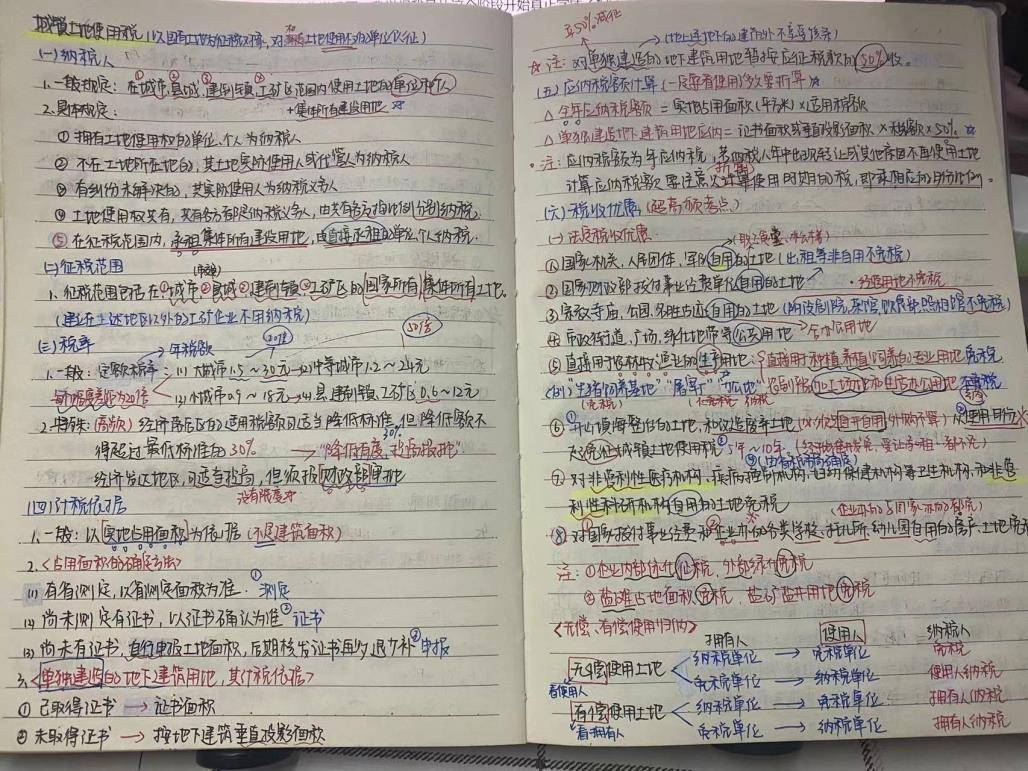 城镇土地使用税(以国有土地为征税对象,对拥有土地使用权的单位、个人征)
(一)纳税人
1.一般规定:在①城市②县城③建制镇④工矿区范围内使用土地的单位和个人
2.具体规定: +集体所有建设用地☆
①拥有土地使用权的单位、个人为纳税人
②不在土地所在地的,其土地实际使用人或代管人为纳税人
③有纠纷未解决的,其实际使用人为纳税义务人
④土地使用权共有,共有各方都是纳税义务人,由共有各方按比例分别纳税
⑤在征税范围内,承租集体所有建设用地,由直接承租的单位、个人纳税.
(二)征税范围
1.征税范围包括在①城市②县城③建制镇④工矿区的国家所有,集体所有土地.
(建立在上述地区以外的工矿企业不用纳税)
(三)税率
20倍 50倍
1.一般:定额税率: → 年税额
(1)大城市1.5~30元 (2)中等城市1.2~24元
每个幅度差距为20倍
(3)小城市0.9~18元 (4)县,建制镇,工矿区0.6~12元
2.特殊:(高频)经济落后区的适用税额可适当降低标准,但降低额不
得超过最低标准的30% → "降低有度,提高报批"
经济发达地区,可适当提高,但须报财政部审批
没有限度
(四)计税依据
1.一般:以实地占用面积为依据(不是建筑面积)
2.<占用面积的确定方法>
(1)有省测定,以省测定面积为准.①测定
(2)尚未测定有证书,以证书确认为准②证书
(3)尚未有证书,自行申报土地面积,后期核发证书再多退少补③申报
3.<单独建造的地下建筑用地,其计税依据>
①已取得证书 → 证书面积
②未取得证书 → 按地下建筑垂直投影面积
50%减征
(地上连地下的建筑物不享受该条)
☆注:对单独建造的地下建筑用地暂按应征税款的50%收.
(五)应纳税额计算(一定要看使用多久要折算☆
△全年应纳税额=实际占用面积(平方米)×适用税额
△单独建造地下建筑用地应纳=证书面积或垂直投影面积×税额×50%☆
·注:应纳税额为年应纳税,若纳税人年中出现转让或其他原因不再使用土地
折算
计算应纳税额要注意计算使用时期的税,即乘相应的月份比例.
(六)税收优惠(超高频考点)
(一)法定税收优惠
①国家机关,人民团体,军队自用的土地(出租等非自用不免税)
②国家财政部拨付事业经费单位自用的土地
·经营用地不免税
③宗教寺庙,公园,名胜古迹自用的土地(附设剧院,茶馆,饮食部,照相馆不免税)
④市政街道,广场,绿化地带等公共用地 → 含办公用地
⑤直接用于农林牧渔业的生产用地:直接用于种植养殖饲养的专业用地免税
(例)"生猪饲养基地""屠宰厂""办公地" 农副产品加工场地和生活办公用地不免税
(免税)
⑥开山填海整治的土地,和改造废弃土地
免征城镇土地使用税5年~10年.
⑦对非营利性医疗机构,疾病控制机构,妇幼保健机构等卫生机构,和非营
利性科研机构自用的土地免税
(企业办的与国家办的都免)
⑧对国家拨付事业经费和企业办的各类学校,托儿所,幼儿园自用的房产,土地免税
注:①企业内部绿化征税,外部绿化免税
②盐滩占地面积免税,盐矿盐井用地免税
<无偿、有偿使用归纳>
拥有人 使用人 纳税人
无偿使用土地 纳税单位 → 免税单位 免税
看使用人 免税单位 → 纳税单位 使用人纳税
有偿使用土地 纳税单位 → 免税单位 拥有人纳税
看拥有人 免税单位 → 纳税单位 拥有人纳税